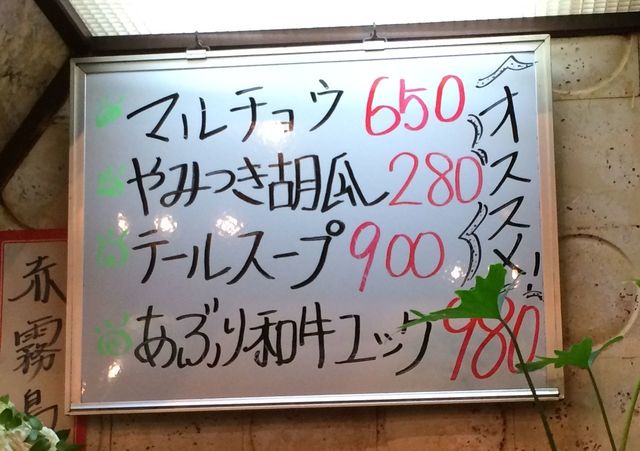 オススメ!
マルチョウ 650
やみつき胡瓜 280
テールスープ 900
あぶり和牛ユッケ 980
赤霧島